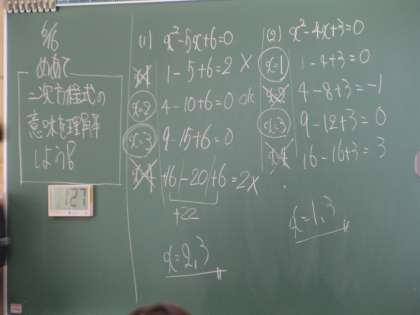 5/6
めあて
二次方程式の
意味を理解
しよう!
127
(1) x²-5x+6=0
x=1 1-5+6=2 ×
x=2 4-10+6=0 ok
x=3 9-15+6=0
x=4 16-20+6=2×
+22
x=2,3
(2) x²-4x+3=0
x=1 1-4+3=0
x=2 4-8+3=-1
x=3 9-12+3=0
x=4 16-16+3=3
x=1,3